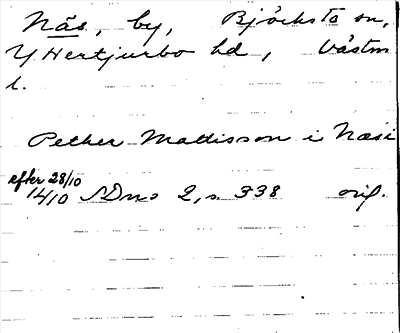 Näs, by, Björksta sn,
Y Hertjurbo hd, Västm
l.
Pether Mattisson i Näsi
efter 28/10
14/10 SDns 2, s. 338 orig.